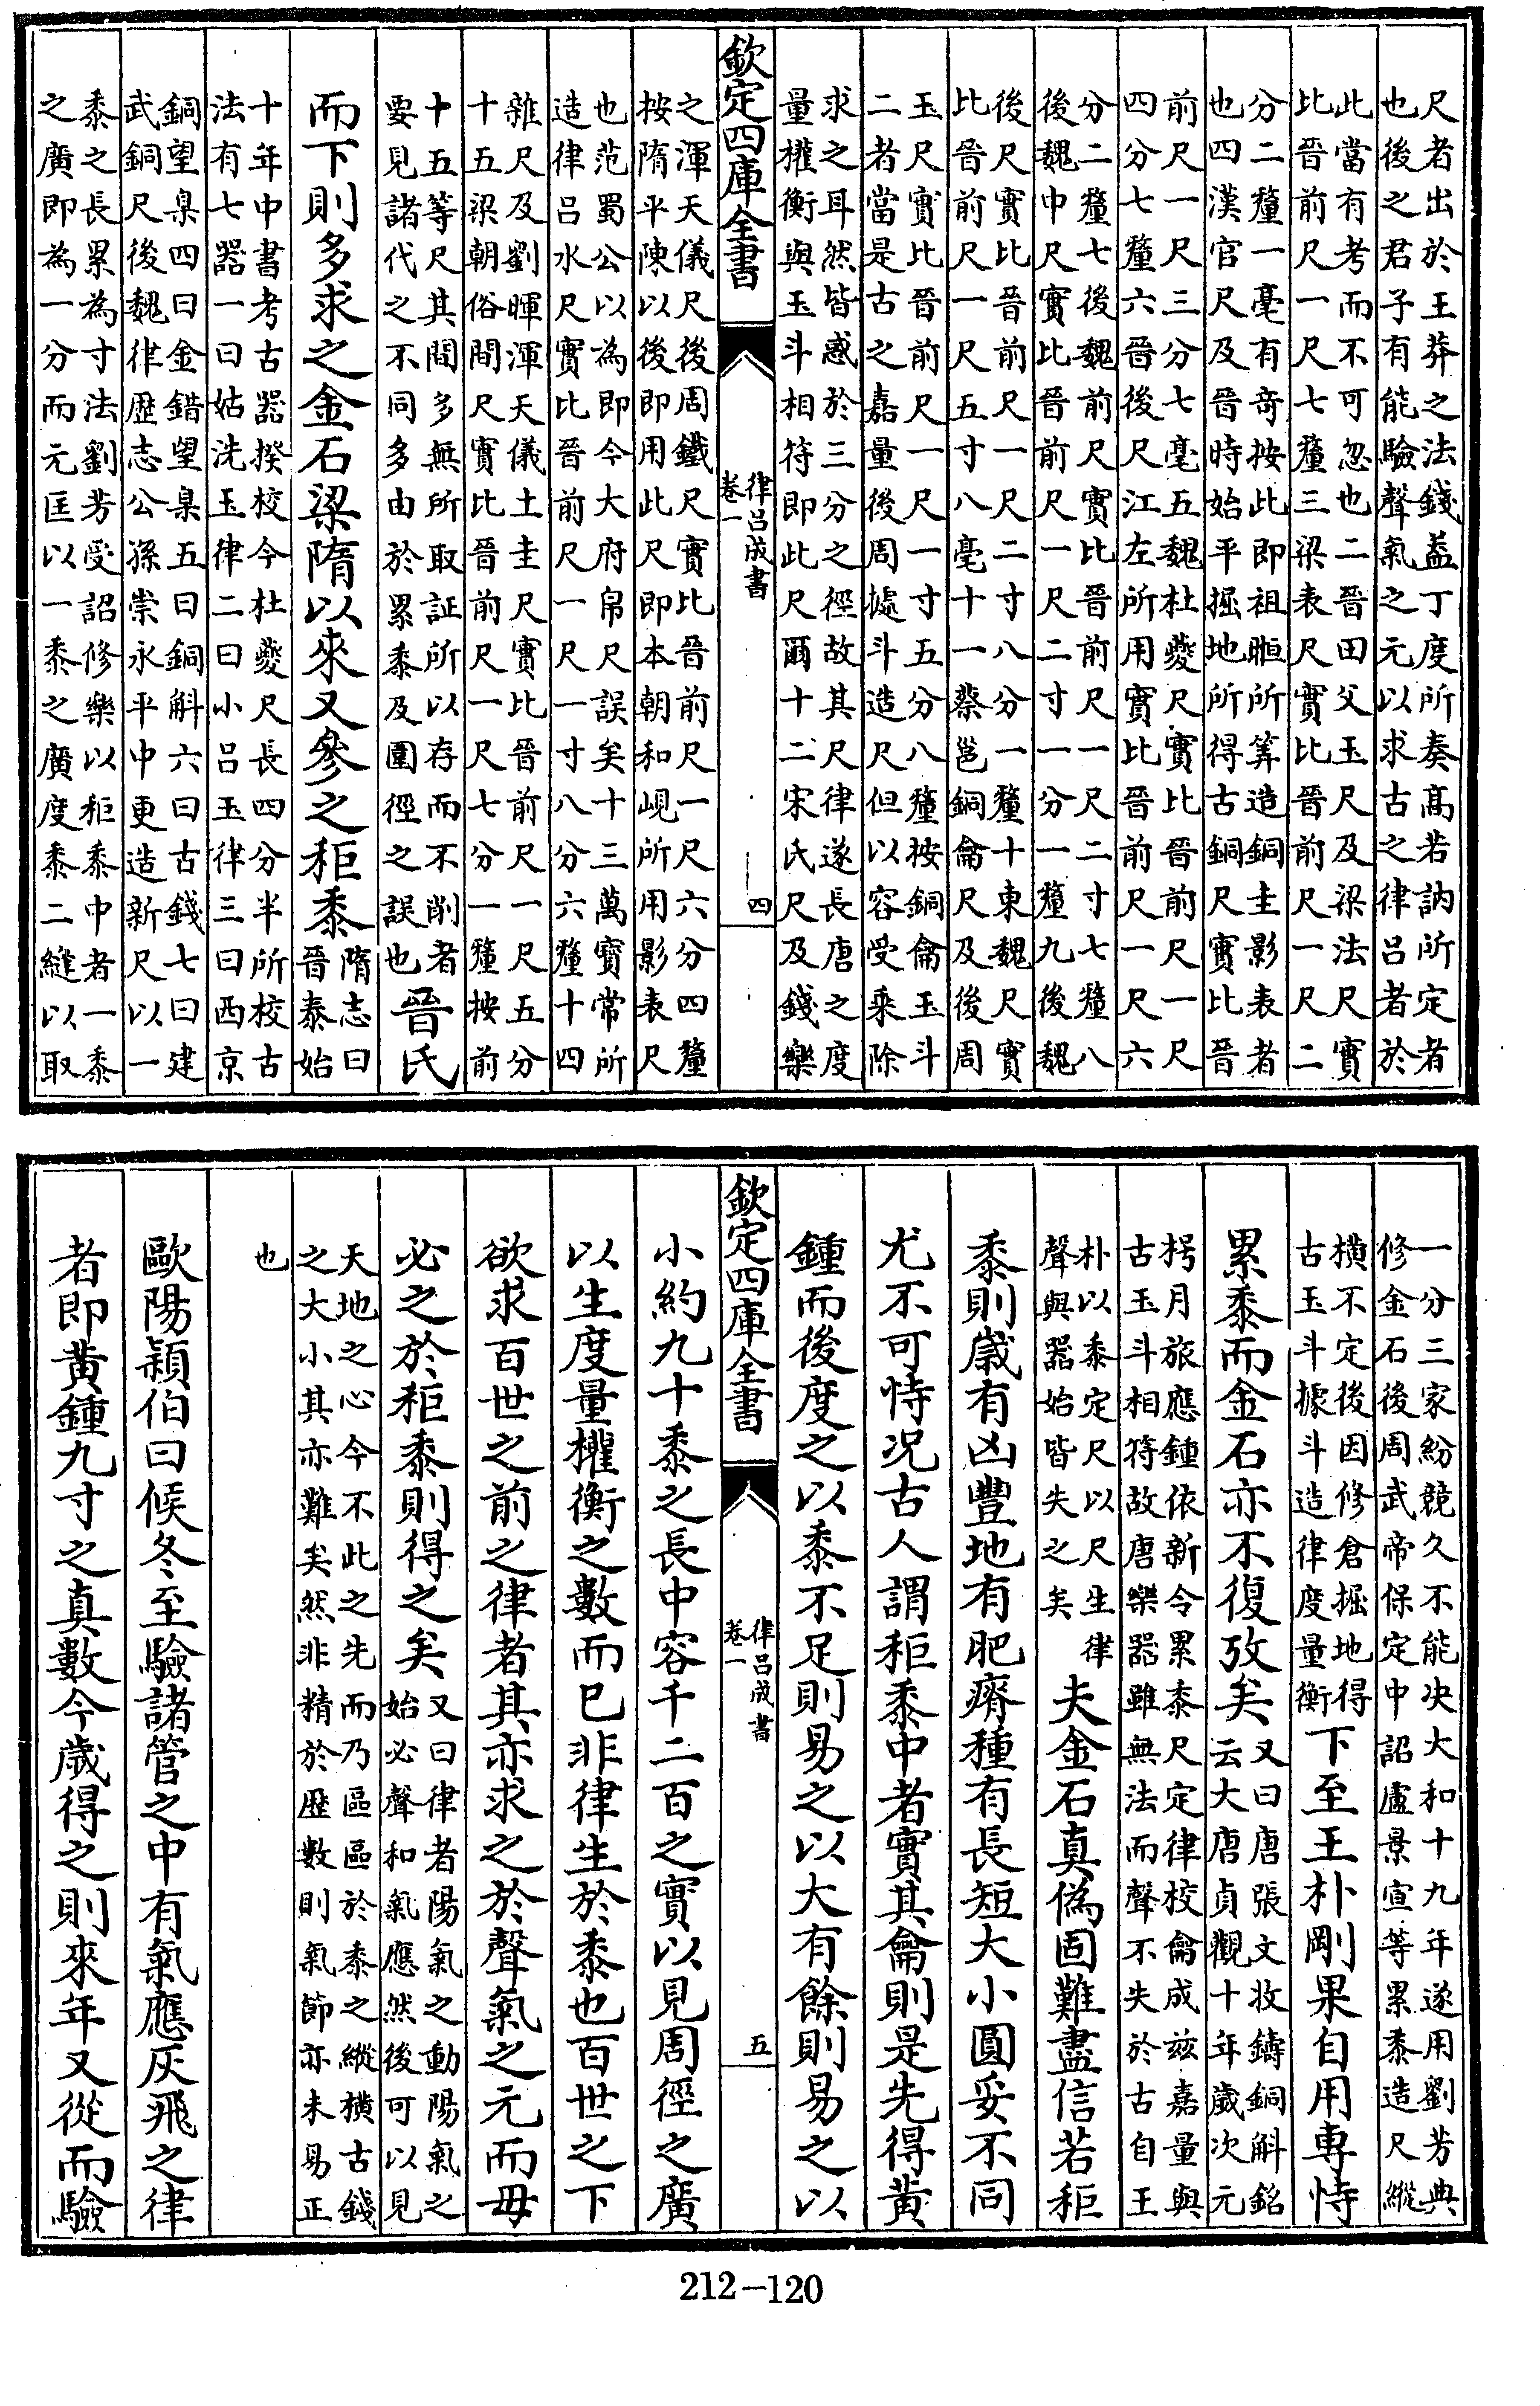 尺者出於王莽之法錢葢丁度所奏髙若訥所定者
也後之君子有能驗聲氣之元以求古之律呂者於
此當有考而不可忽也二晉田父玉尺及梁法尺實
比晉前尺一尺七釐三梁表尺實比晉前尺一尺二
分二釐一毫有竒按此即祖暅所筭造銅圭影表者
也四漢官尺及晉時始平掘地所得古銅尺實比晉
前尺一尺三分七毫五魏杜夔尺實比晉前尺一尺
四分七釐六晉後尺江左所用實比晉前尺一尺六
分二釐七後魏前尺實比晉前尺一尺二寸七釐八
後魏中尺實比晉前尺一尺二寸一分一釐九後魏
後尺實比晉前尺一尺二寸八分一釐十東魏尺實
比晉前尺一尺五寸八毫十一蔡邕銅龠尺及後周
玉尺實比晉前尺一尺一寸五分八釐按銅龠玉斗
二者當是古之嘉量後周據斗造尺但以容受乗除
求之耳然皆惑於三分之徑故其尺律遂長唐之度
量權衡與玉斗相符即此尺爾十二宋氏尺及錢樂
欽定四庫全書
律呂成書
卷一
四
之渾天儀尺後周鐵尺實比晉前尺一尺六分四釐
按隋平陳以後即用此尺即本朝和峴所用影表尺
也范蜀公以為即今大府帛尺誤矣十三萬寳常所
造律呂水尺實比晉前尺一尺一寸八分六釐十四
雜尺及劉暉渾天儀土圭尺實比晉前尺一尺五分
十五梁朝俗間尺實比晉前尺一尺七分一釐按前
十五等尺其間多無所取証所以存而不削者
要見諸代之不同多由於累黍及圍徑之誤也
晉氏
而下則多求之金石梁隋以來又參之秬黍
隋志曰
晉泰始
十年中書考古器揆校今杜夔尺長四分半所校古
法有七器一曰姑洗玉律二曰小呂玉律三曰西京
銅望臬四曰金錯望臬五曰銅斛六曰古錢七曰建
武銅尺後魏律歴志公孫崇永平中更造新尺以一
黍之長累為寸法劉芳受詔修樂以秬黍中者一黍
之廣即為一分而元匡以一黍之廣度黍二縫以取
一分三家紛競久不能决大和十九年遂用劉芳典
修金石後周武帝保定中詔盧景宣等累黍造尺縱
橫不定後因修倉掘地得
古玉斗據斗造律度量衡
下至王朴剛果自用專恃
累黍而金石亦不復攷矣
又曰唐張文收鑄銅斛銘
云大唐貞觀十年歲次元
枵月旅應鍾依新令累黍尺定律校龠成兹嘉量與
古玉斗相符故唐樂器雖無法而聲不失於古自王
朴以黍定尺以尺生律
聲與器始皆失之矣
夫金石真偽固難盡信若秬
黍則歲有凶豐地有肥瘠種有長短大小圓妥不同
尤不可恃况古人謂秬黍中者實其龠則是先得黄
鍾而後度之以黍不足則易之以大有餘則易之以
欽定四庫全書
律呂成書
卷一
五
小約九十黍之長中容千二百之實以見周徑之廣
以生度量權衡之數而已非律生於黍也百世之下
欲求百世之前之律者其亦求之於聲氣之元而毋
必之於秬黍則得之矣
又曰律者陽氣之動陽氣之
始必聲和氣應然後可以見
天地之心今不此之先而乃區區於黍之縱横古錢
之大小其亦難矣然非精於歴數則氣節亦未易正
也
歐陽潁伯曰候冬至驗諸管之中有氣應灰飛之律
者即黄鍾九寸之真數今歲得之則來年又從而驗
212-120